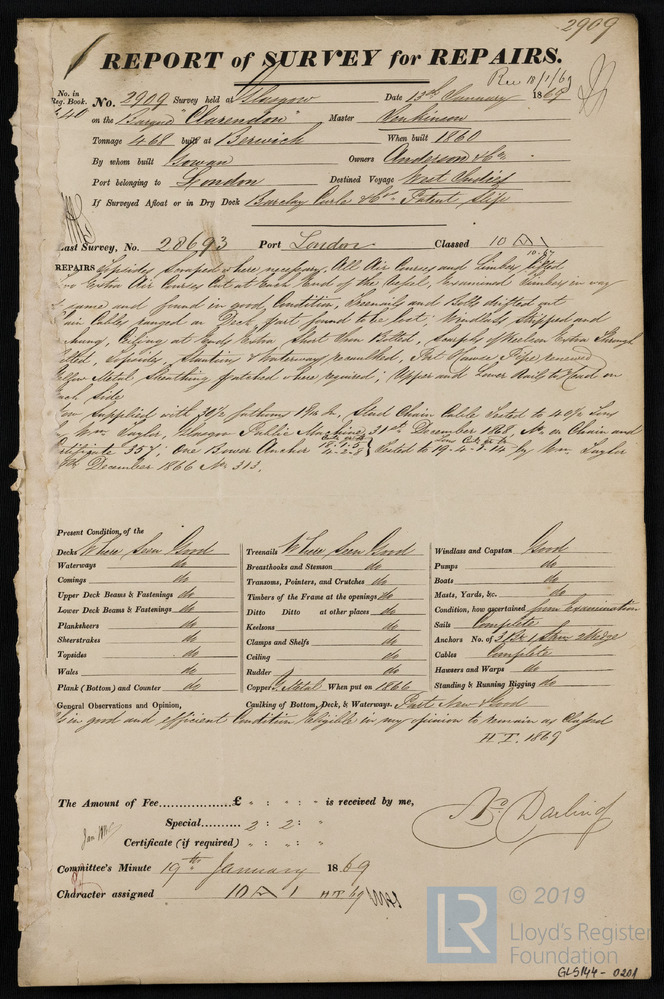 2909
REPORT of SURVEY for REPAIRS.
Rec 18/1/69
No. in Reg. Book. No. 2909 Survey held at Glasgow Date 13th January 1869
on the Barque "Clarendon" Master Jenkinson
Tonnage 468 built at Berwick When built 1860
By whom built Gowan Owners Anderson & Co
Port belonging to London Destined Voyage West Indies
If Surveyed Afloat or in Dry Dock Barclay Curle & Co's Patent Slip
Last Survey, No. 28693 Port London Classed 10 A 1
10.67
REPAIRS Topsides Scraped where necessary, All Air Courses and Limbers lifted
Extra Air Courses Cut at Each End of the Vessel, Examined Timbers in way
of same and found in good Condition, Treenails and Bolts drifted out
Chain Cables ranged on Deck, part found to be
Windlass Stripped and
Ceiling at ends Extra Short Iron Bolted, Scarphs of Keelson Extra Through
Bolted, Topsides, Stantion & Waterways recaulked, Hawse Pipe renewed
Yellow Metal Sheathing patched where required; Upper and Lower Rails
each side
Now Supplied with 30½ fathoms Stud Chain Cable Tested to 40¾ Tons
by Wm. Taylor, Glasgow Public Machine, 31st December 1868, No. on Chain and
Certificate 357; One Bower Anchor 18-1-5 4-2-8 Tested to 19-4-1-14 by Wm. Taylor
December 1866 No. 313.
Present Condition, of the
Decks Where Seen Good Treenails Where Seen Good Windlass and Capstan Good
Waterways do Breasthooks and Stemson do Pumps do
Comings do Transoms, Pointers, and Crutches do Boats do
Upper Deck Beams & Fastenings do Timbers of the Frame at the openings do Masts, Yards, &c. do
Lower Deck Beams & Fastenings do Ditto Ditto at other places do Condition, how ascertained from Examination
Planksheers do Keelsons do Sails Complete
Sheerstrakes do Clamps and Shelfs do Anchors No. of 3 Br 1 Strm 2 Kedge
Topsides do Ceiling do Cables Complete
Wales do Rudder do Hawsers and Warps do
Plank (Bottom) and Counter do Copper Y. Metal When put on 1866 Standing & Running Rigging do
General Observations and Opinion, Caulking of Bottom, Deck, & Waterways. Part New & Good
Is in good and efficient Condition Eligible in my opinion to remain as Classed
H.T. 1869
The Amount of Fee..................£ " : " : " is received by me,
Special.......... 2 : 2 : "
Certificate (if required) " : " : "
Ns. Darling
Committee's Minute 19th January 1869
Character assigned 10 A 1 HT 69
© 2019
LR Lloyd's Register
Foundation
GLS144-0201